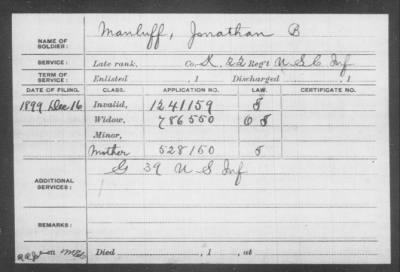 NAME OF SOLDIER: Manluff, Jonathan B
SERVICE: Late rank, Co. K, 22 Reg't U S C Inf
TERM OF SERVICE: Enlisted , 1 Discharged , 1
DATE OF FILING. CLASS. APPLICATION NO. LAW. CERTIFICATE NO.
1899 Dec 16 Invalid, 1241159
Widow, 786550
Minor,
Mother 528150
ADDITIONAL SERVICES: G 39 U S Inf
REMARKS:
Died , 1 , at